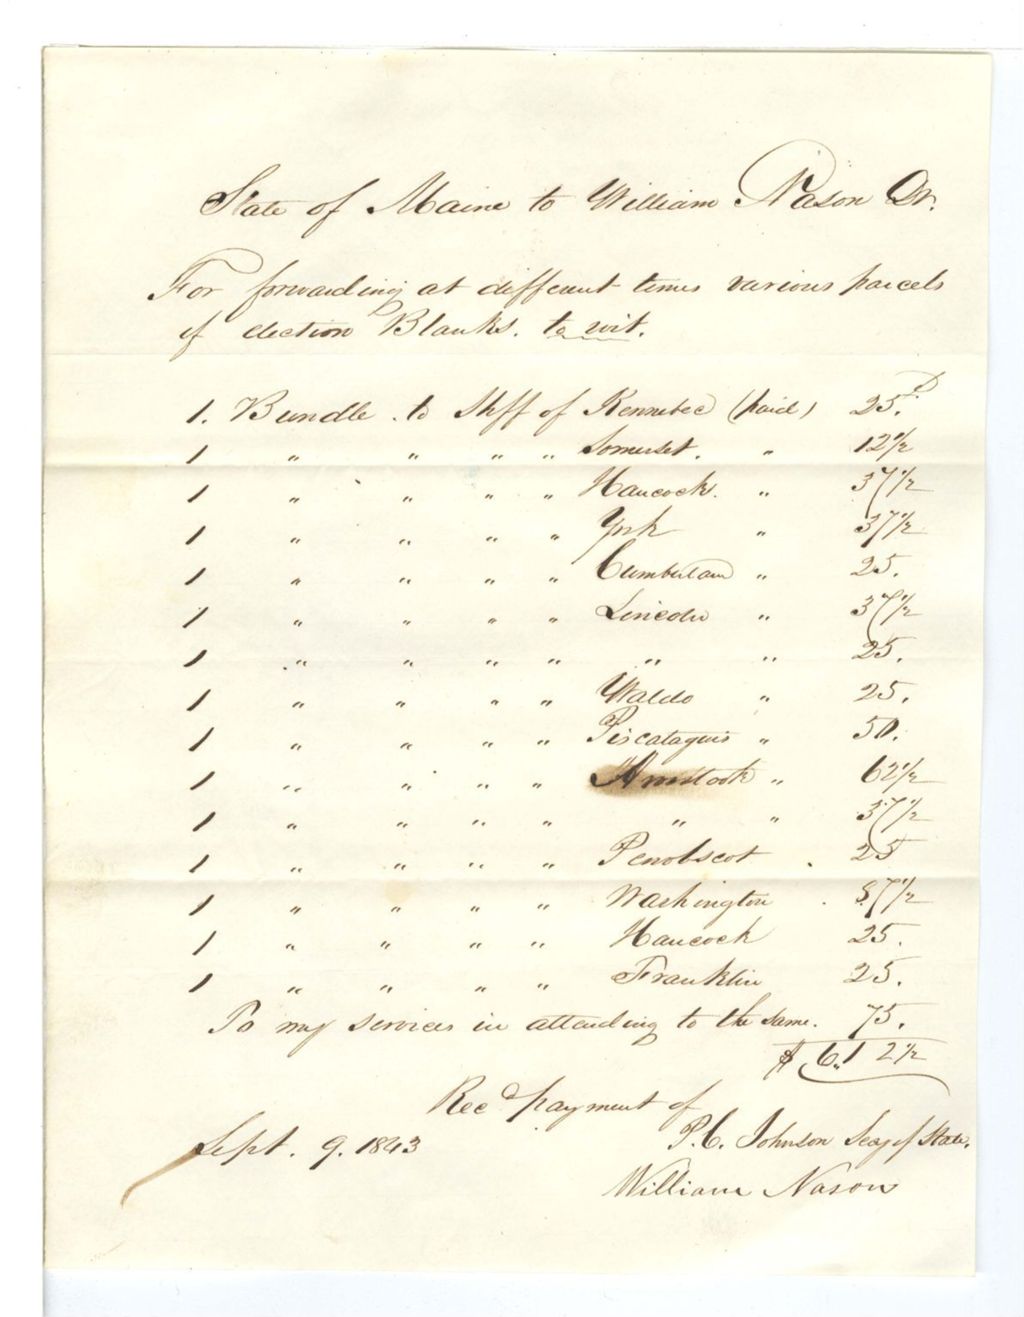 State of Maine to William Nason Dr.
For forwarding at different times various parcels
of election Blanks. to wit.
1. Bundle . to Shff of Kennebec (paid) 25.
1 " " " " Somerset. " 12 1/2
1 " " " " Hancock. " 37 1/2
1 " " " " York " 37 1/2
1 " " " " Cumberland " 25.
1 " " " " Lincoln " 37 1/2
1 " " " " " " 25.
1 " " " " Waldo " 25.
1 " " " " Piscataquis " 50.
1 " " " " Aroostook " 62 1/2
1 " " " " " " 37 1/2
1 " " " " Penobscot . 25
1 " " " " Washington . 87 1/2
1 " " " " Hancock 25.
1 " " " " Franklin 25.
To my services in attending to the same. 75.
$ 6.12 1/2
Recd payment of
P.C. Johnson Secy of State.
Sept. 9. 1843
William Nason